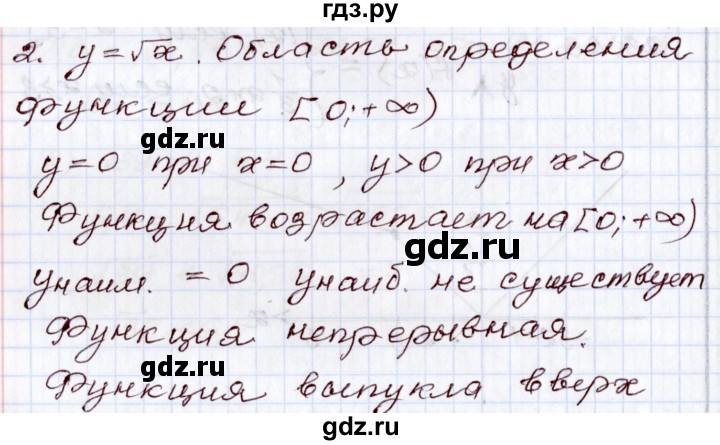 гдз.ру
2. y=√x. Область определения
функции [0;+∞)
gdz.ru
y=0 при x=0, y>0 при x>0
Функция возрастает на [0;+∞)
gdz.ru
yнаим. = 0 yнаиб. не существует
Функция непрерывная.
gdz.ru
Функция выпукла вверх
gdz.ru